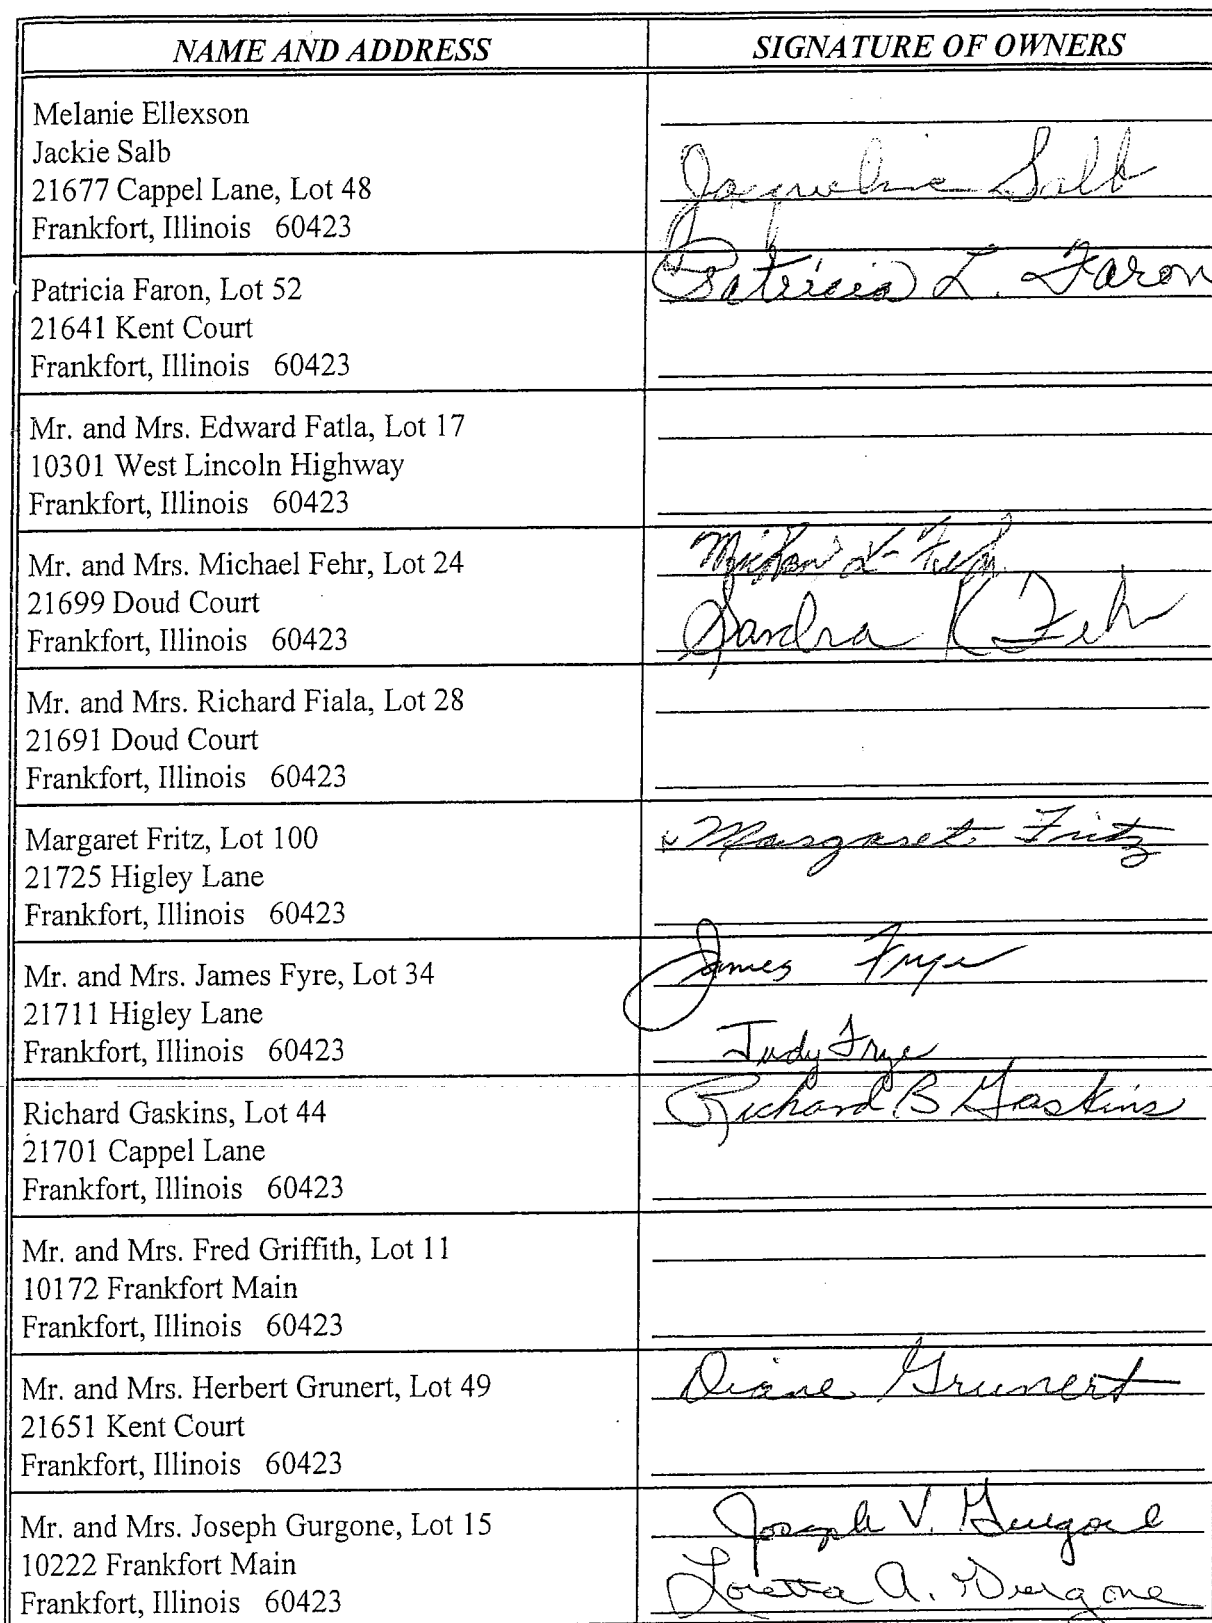 NAME AND ADDRESS
SIGNATURE OF OWNERS
Melanie Ellexson
Jackie Salb
21677 Cappel Lane, Lot 48
Frankfort, Illinois 60423
Jaqueline Salb
Patricia Faron, Lot 52
21641 Kent Court
Frankfort, Illinois 60423
Patricia L. Faron
Mr. and Mrs. Edward Fatla, Lot 17
10301 West Lincoln Highway
Frankfort, Illinois 60423
Mr. and Mrs. Michael Fehr, Lot 24
21699 Doud Court
Frankfort, Illinois 60423
Michael L. Fehr
Sandra K Fehr
Mr. and Mrs. Richard Fiala, Lot 28
21691 Doud Court
Frankfort, Illinois 60423
Margaret Fritz, Lot 100
21725 Higley Lane
Frankfort, Illinois 60423
Margaret Fritz
Mr. and Mrs. James Fyre, Lot 34
21711 Higley Lane
Frankfort, Illinois 60423
James Frye
Judy Frye
Richard Gaskins, Lot 44
21701 Cappel Lane
Frankfort, Illinois 60423
Richard B Gaskins
Mr. and Mrs. Fred Griffith, Lot 11
10172 Frankfort Main
Frankfort, Illinois 60423
Mr. and Mrs. Herbert Grunert, Lot 49
21651 Kent Court
Frankfort, Illinois 60423
Diane Grunert
Mr. and Mrs. Joseph Gurgone, Lot 15
10222 Frankfort Main
Frankfort, Illinois 60423
Joseph V. Gurgone
Loretta A. Gurgone